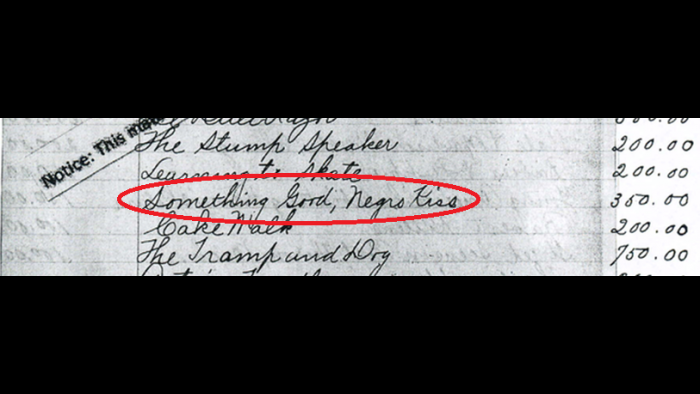 Notice: This
The Stump Speaker 200.00
Learning to Skate 200.00
Something Good, Negro Kiss 350.00
Cake Walk 200.00
The Tramp and Dog 750.00